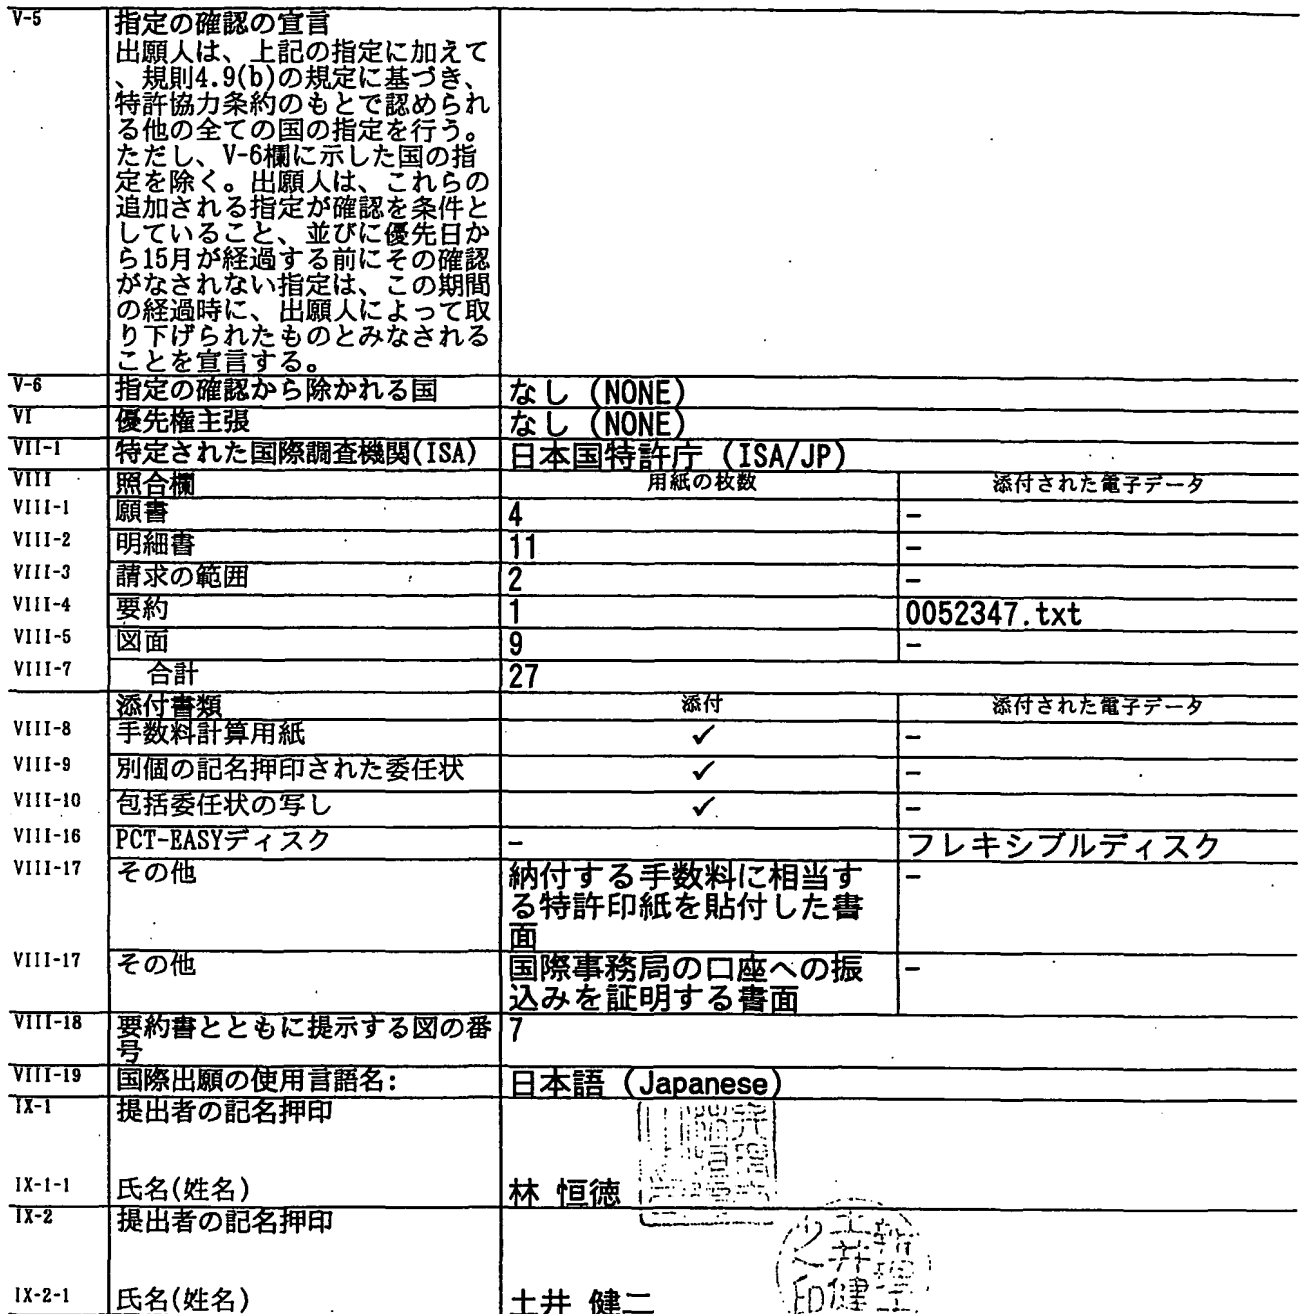 V-5 指定の確認の宣言
出願人は、上記の指定に加えて
、規則4.9(b)の規定に基づき、
特許協力条約のもとで認められ
る他の全ての国の指定を行う。
ただし、V-6欄に示した国の指
定を除く。出願人は、これらの
追加される指定が確認を条件と
していること、並びに優先日か
ら15月が経過する前にその確認
がなされない指定は、この期間
の経過時に、出願人によって取
り下げられたものとみなされる
ことを宣言する。
V-6 指定の確認から除かれる国 なし (NONE)
VI 優先権主張 なし (NONE)
VII-1 特定された国際調査機関(ISA) 日本国特許庁 (ISA/JP)
VIII 照合欄 用紙の枚数 添付された電子データ
VIII-1 願書 4 -
VIII-2 明細書 11 -
VIII-3 請求の範囲 2 -
VIII-4 要約 1 0052347.txt
VIII-5 図面 9 -
VIII-7 合計 27
添付書類 添付 添付された電子データ
VIII-8 手数料計算用紙 ✓ -
VIII-9 別個の記名押印された委任状 ✓ -
VIII-10 包括委任状の写し ✓ -
VIII-16 PCT-EASYディスク - フレキシブルディスク
VIII-17 その他 納付する手数料に相当す -
る特許印紙を貼付した書
面
VIII-17 その他 国際事務局の口座への振 -
込みを証明する書面
VIII-18 要約書とともに提示する図の番 7
号
VIII-19 国際出願の使用言語名: 日本語 (Japanese)
IX-1 提出者の記名押印
IX-1-1 氏名(姓名) 林 恒徳
IX-2 提出者の記名押印
IX-2-1 氏名(姓名) 土井 健二